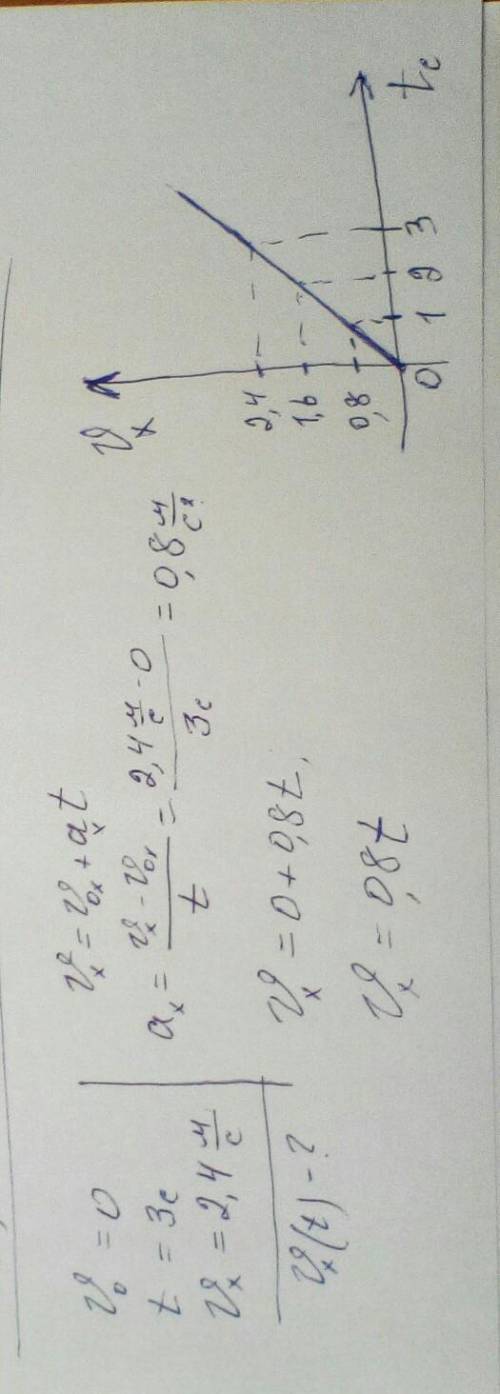 v₀ = 0
t = 3с
vₓ = 2,4 м/с
vₓ(t) - ?
vₓ = v₀ₓ + aₓt
aₓ = (vₓ - v₀ₓ)/t = (2,4 м/с - 0)/3с = 0,8 м/с².
vₓ = 0 + 0,8t.
vₓ = 0,8t
vₓ
2,4
1,6
0,8
0 1 2 3
t с